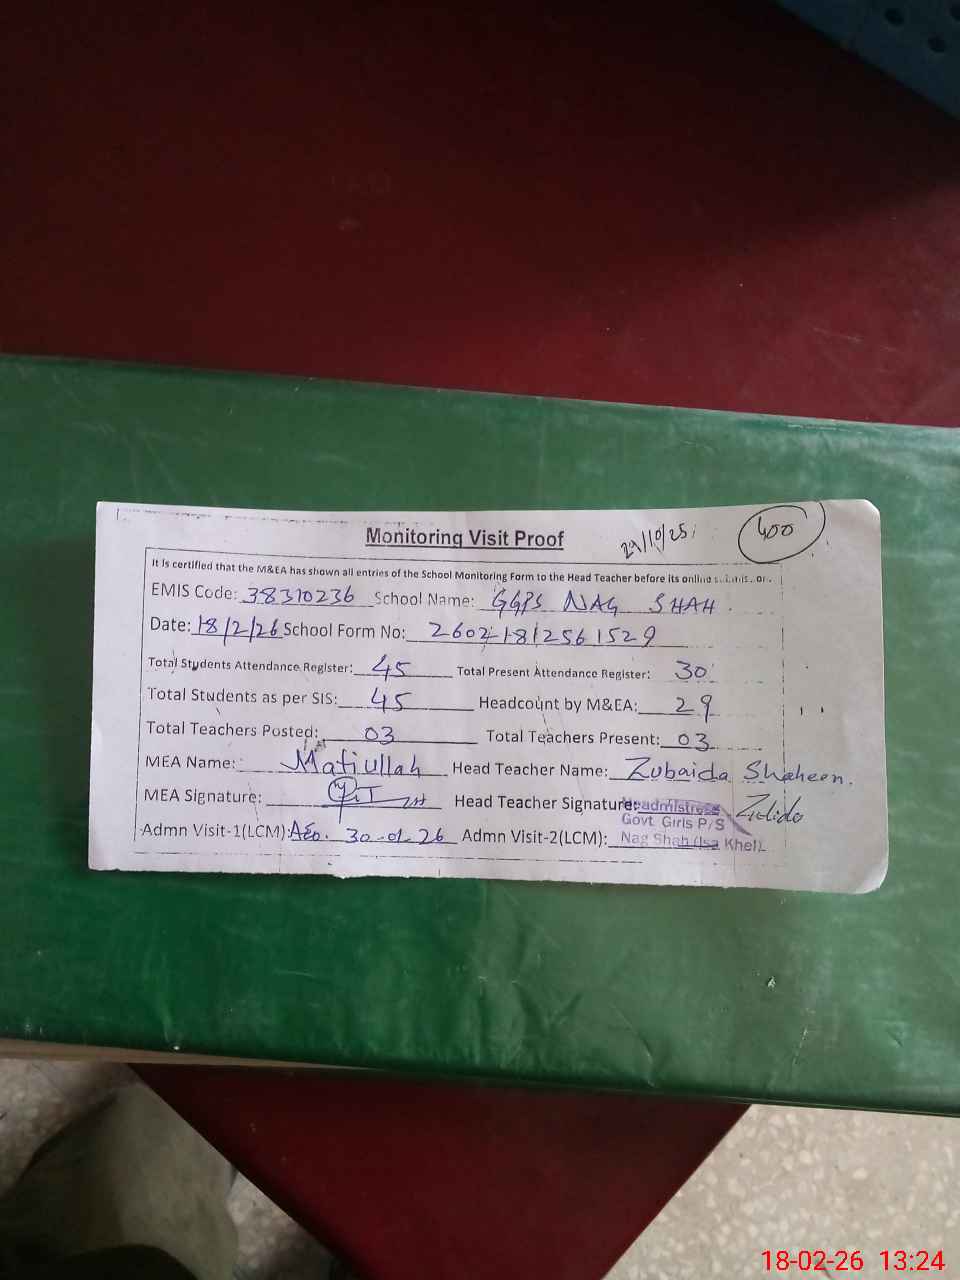 Monitoring Visit Proof 29/10/25 400
It is certified that the M&EA has shown all entries of the School Monitoring Form to the Head Teacher before its online
EMIS Code: 38310236 School Name: GGPS NAG SHAH.
Date: 18/2/26 School Form No: 26021812561529
Total Students Attendance Register: 45 Total Present Attendance Register: 30
Total Students as per SIS: 45 Headcount by M&EA: 29
Total Teachers Posted: 03 Total Teachers Present: 03
MEA Name: Matiullah Head Teacher Name: Zubaida Shaheen.
MEA Signature: Head Teacher Signature: Headmistress
Govt Girls P/S
Admn Visit-1(LCM): AEO. 30-01-26 Admn Visit-2(LCM): Nag Shah (Isa Khel).
18-02-26 13:24